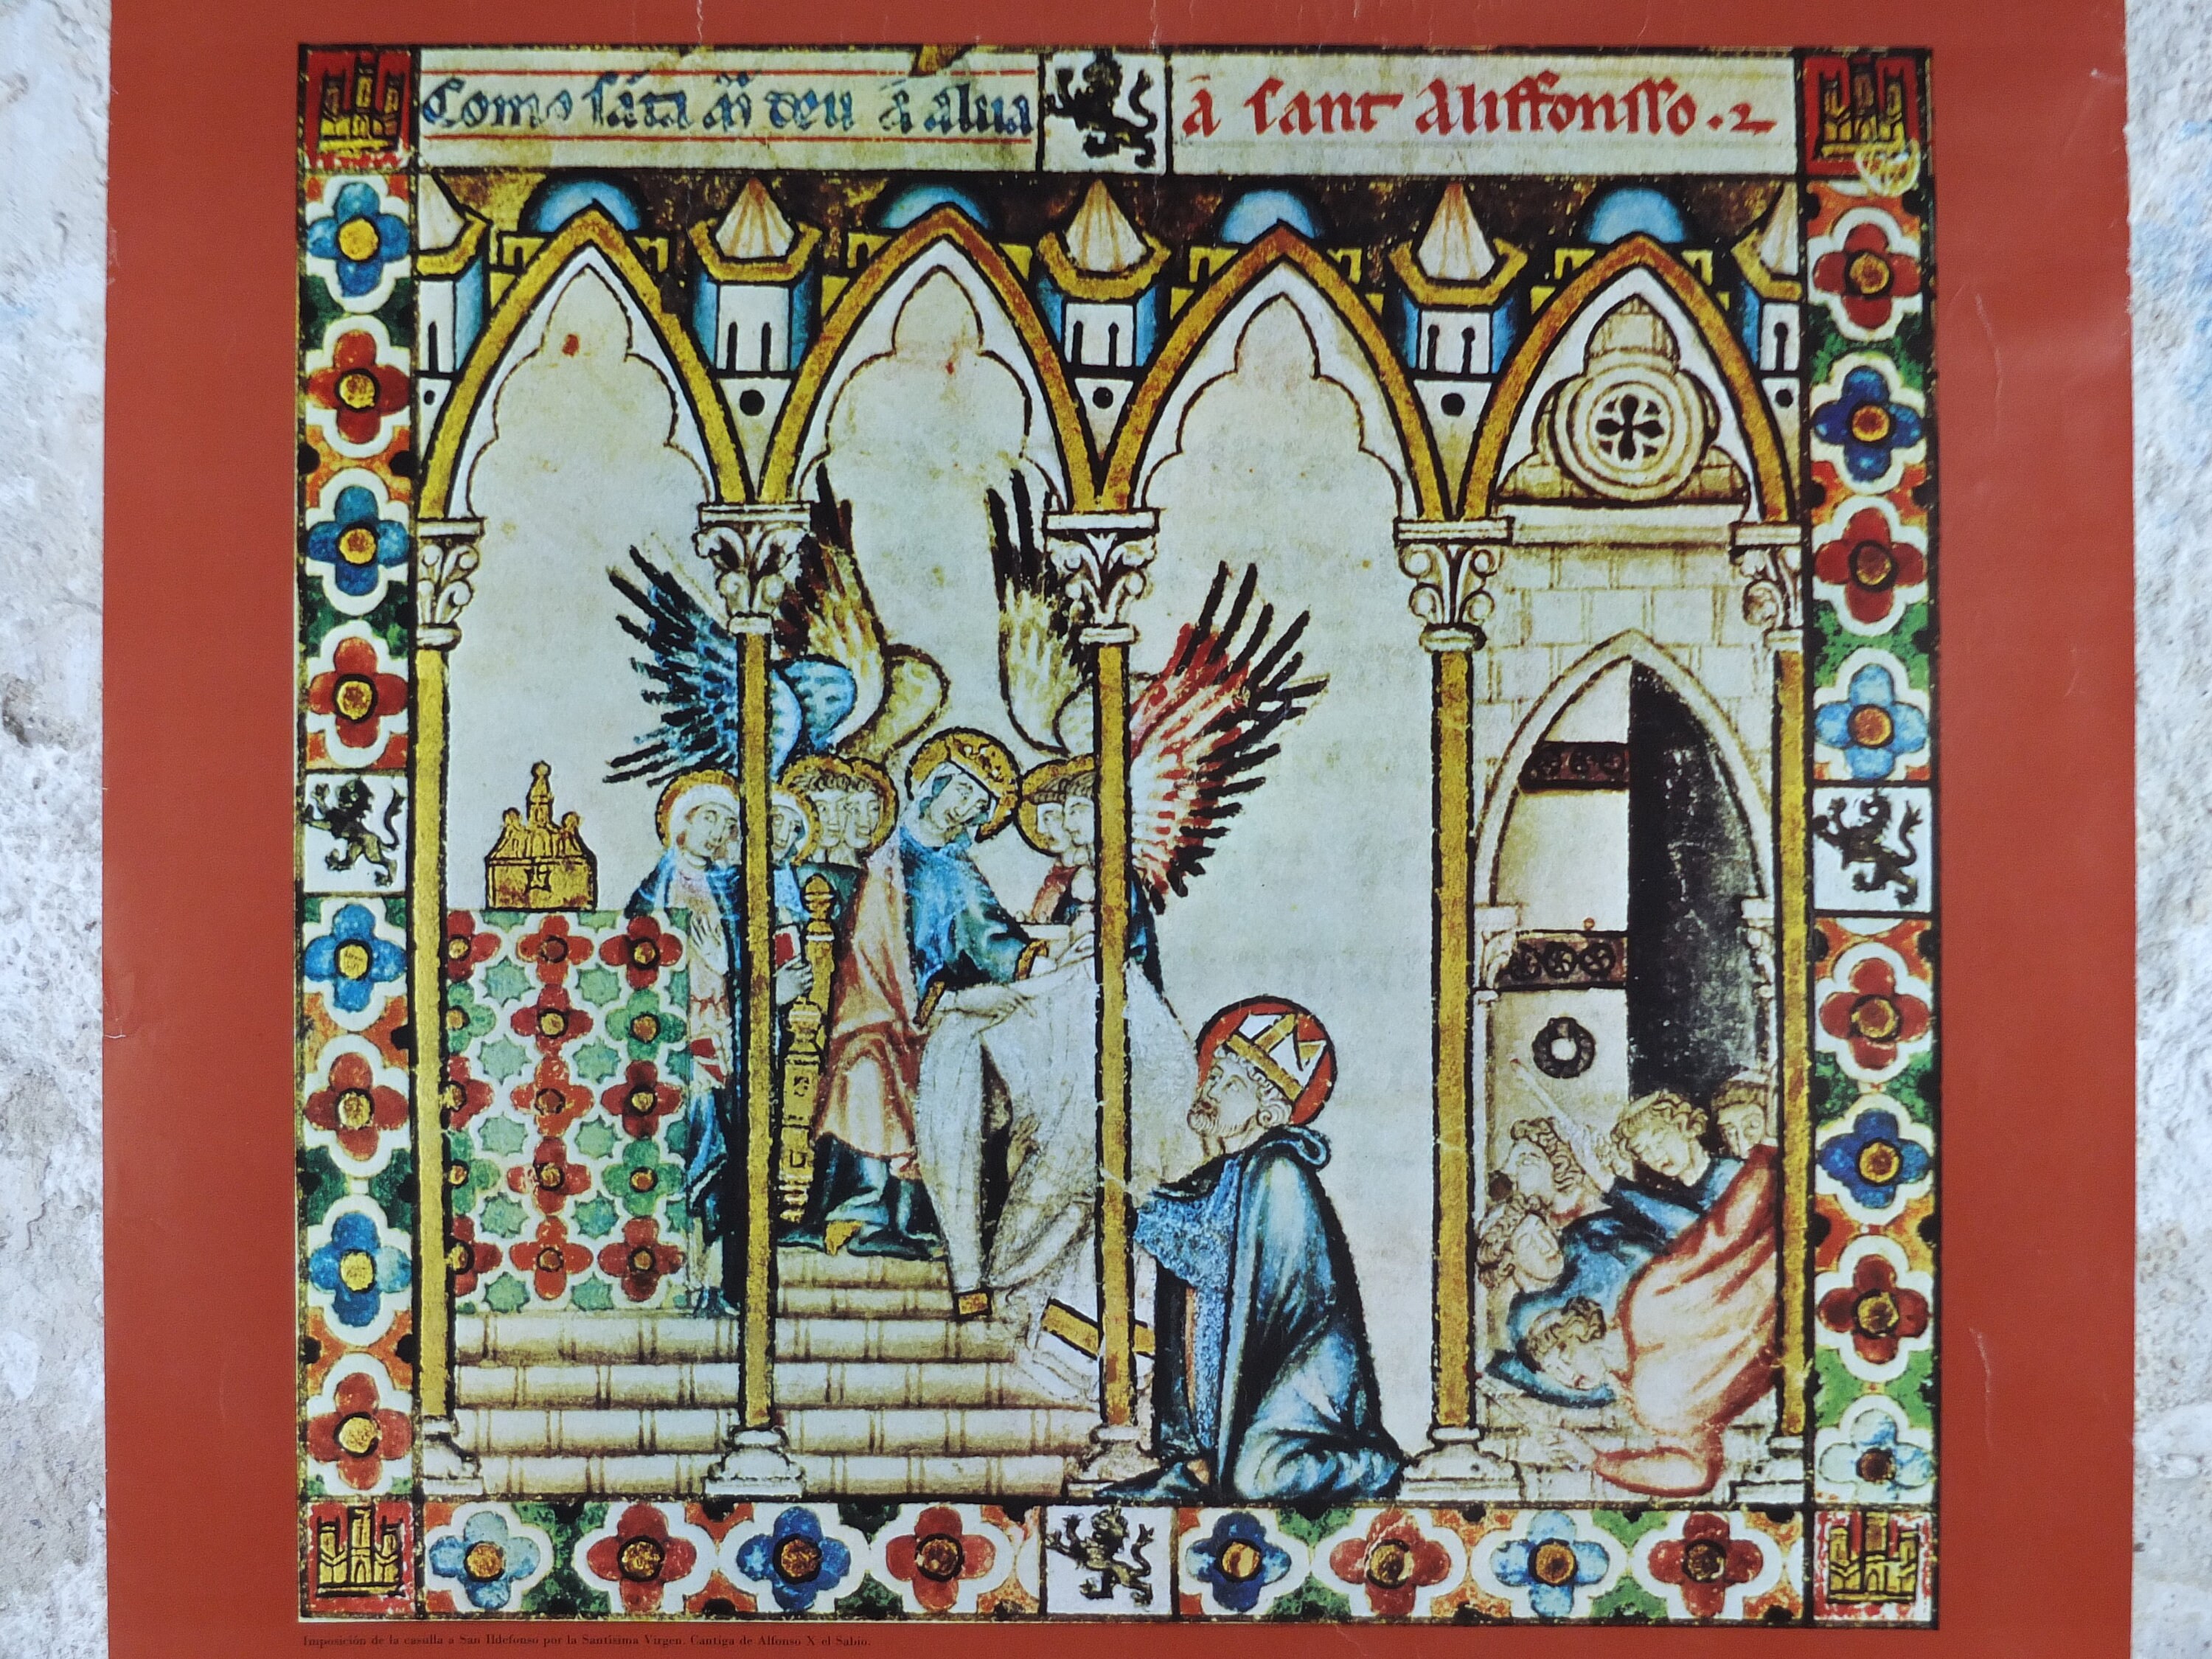 Como sãta mᷓ deu ã alua
ã sant Aliffonsso. 2
Imposición de la casulla a San Ildefonso por la Santísima Virgen. Cantiga de Alfonso X el Sabio.